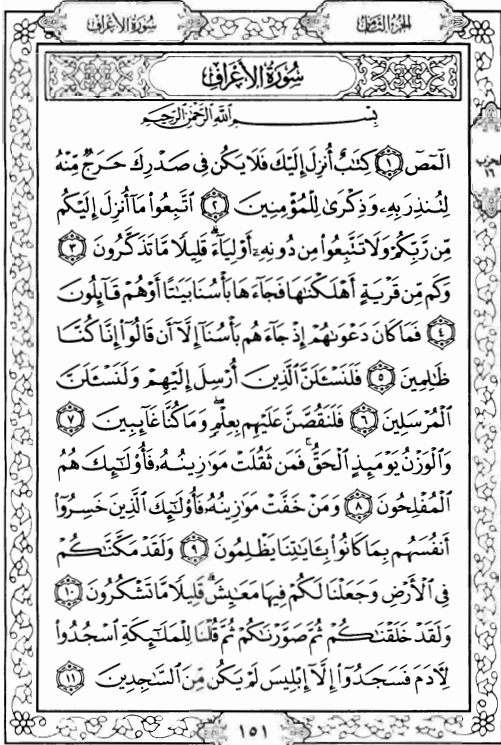 سُورَةُ الأَعْرَافِ
الجُزْءُ الثَّامِنُ
سُورَةُ الأَعْرَافِ
بِسْمِ اللَّهِ الرَّحْمَٰنِ الرَّحِيمِ
الٓمٓصٓ ١ كِتَٰبٌ أُنزِلَ إِلَيْكَ فَلَا يَكُن فِى صَدْرِكَ حَرَجٌ مِّنْهُ
لِتُنذِرَ بِهِۦ وَذِكْرَىٰ لِلْمُؤْمِنِينَ ٢ ٱتَّبِعُوا۟ مَآ أُنزِلَ إِلَيْكُم
مِّن رَّبِّكُمْ وَلَا تَتَّبِعُوا۟ مِن دُونِهِۦٓ أَوْلِيَآءَ ۗ قَلِيلًا مَّا تَذَكَّرُونَ ٣
وَكَم مِّن قَرْيَةٍ أَهْلَكْنَٰهَا فَجَآءَهَا بَأْسُنَا بَيَٰتًا أَوْ هُمْ قَآئِلُونَ
٤ فَمَا كَانَ دَعْوَىٰهُمْ إِذْ جَآءَهُم بَأْسُنَآ إِلَّآ أَن قَالُوٓا۟ إِنَّا كُنَّا
ظَٰلِمِينَ ٥ فَلَنَسْـَٔلَنَّ ٱلَّذِينَ أُرْسِلَ إِلَيْهِمْ وَلَنَسْـَٔلَنَّ
ٱلْمُرْسَلِينَ ٦ فَلَنَقُصَّنَّ عَلَيْهِم بِعِلْمٍ ۖ وَمَا كُنَّا غَآئِبِينَ ٧
وَٱلْوَزْنُ يَوْمَئِذٍ ٱلْحَقُّ ۚ فَمَن ثَقُلَتْ مَوَٰزِينُهُۥ فَأُو۟لَٰٓئِكَ هُمُ
ٱلْمُفْلِحُونَ ٨ وَمَنْ خَفَّتْ مَوَٰزِينُهُۥ فَأُو۟لَٰٓئِكَ ٱلَّذِينَ خَسِرُوٓا۟
أَنفُسَهُم بِمَا كَانُوا۟ بِـَٔايَٰتِنَا يَظْلِمُونَ ٩ وَلَقَدْ مَكَّنَّٰكُمْ
فِى ٱلْأَرْضِ وَجَعَلْنَا لَكُمْ فِيهَا مَعَٰيِشَ ۗ قَلِيلًا مَّا تَشْكُرُونَ ١٠
وَلَقَدْ خَلَقْنَٰكُمْ ثُمَّ صَوَّرْنَٰكُمْ ثُمَّ قُلْنَا لِلْمَلَٰٓئِكَةِ ٱسْجُدُوا۟
لِـَٔادَمَ فَسَجَدُوٓا۟ إِلَّآ إِبْلِيسَ لَمْ يَكُن مِّنَ ٱلسَّٰجِدِينَ ١١
الحزب
١٦
١٥١